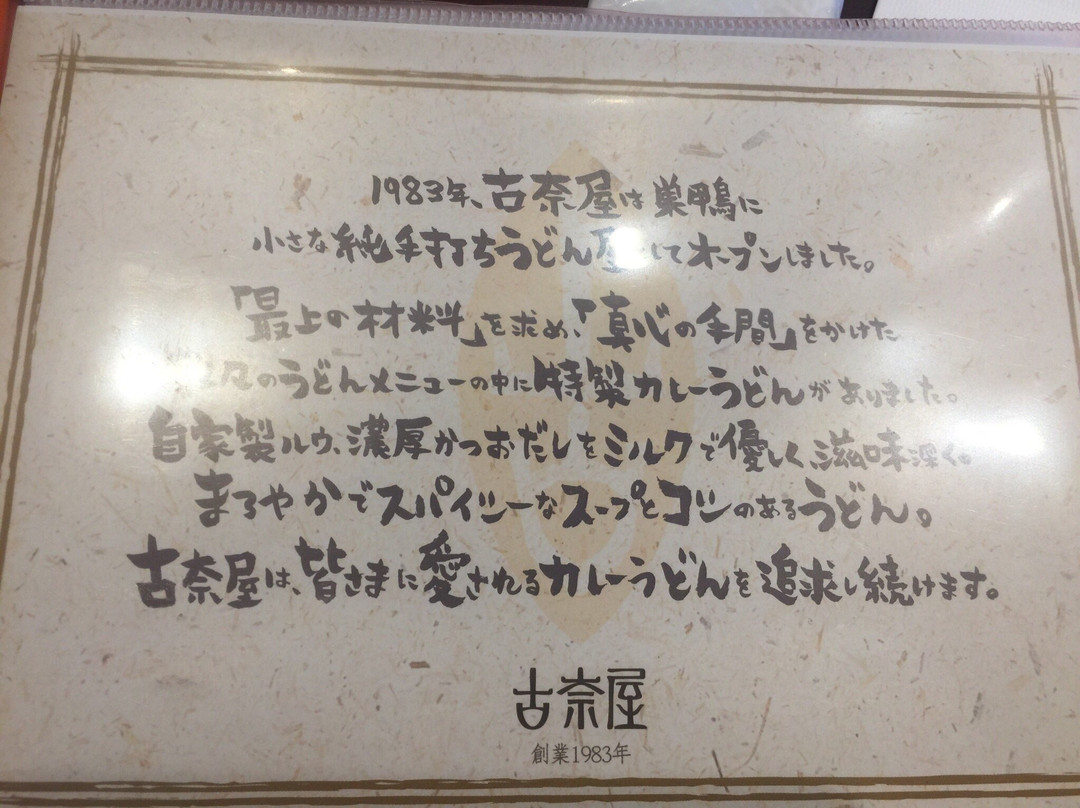 1983年、古奈屋は巣鴨に
小さな純手打ちうどん屋してオープンしました。
「最上の材料」を求め、「真心の手間」をかけた
々のうどんメニューの中に特製カレーうどんがありました。
自家製ルウ、濃厚かつおだしをミルクで優しく、滋味深く。
まろやかでスパイシーなスープとコシのあるうどん。
古奈屋は、皆さまに愛されるカレーうどんを追求し続けます。
古奈屋
創業1983年